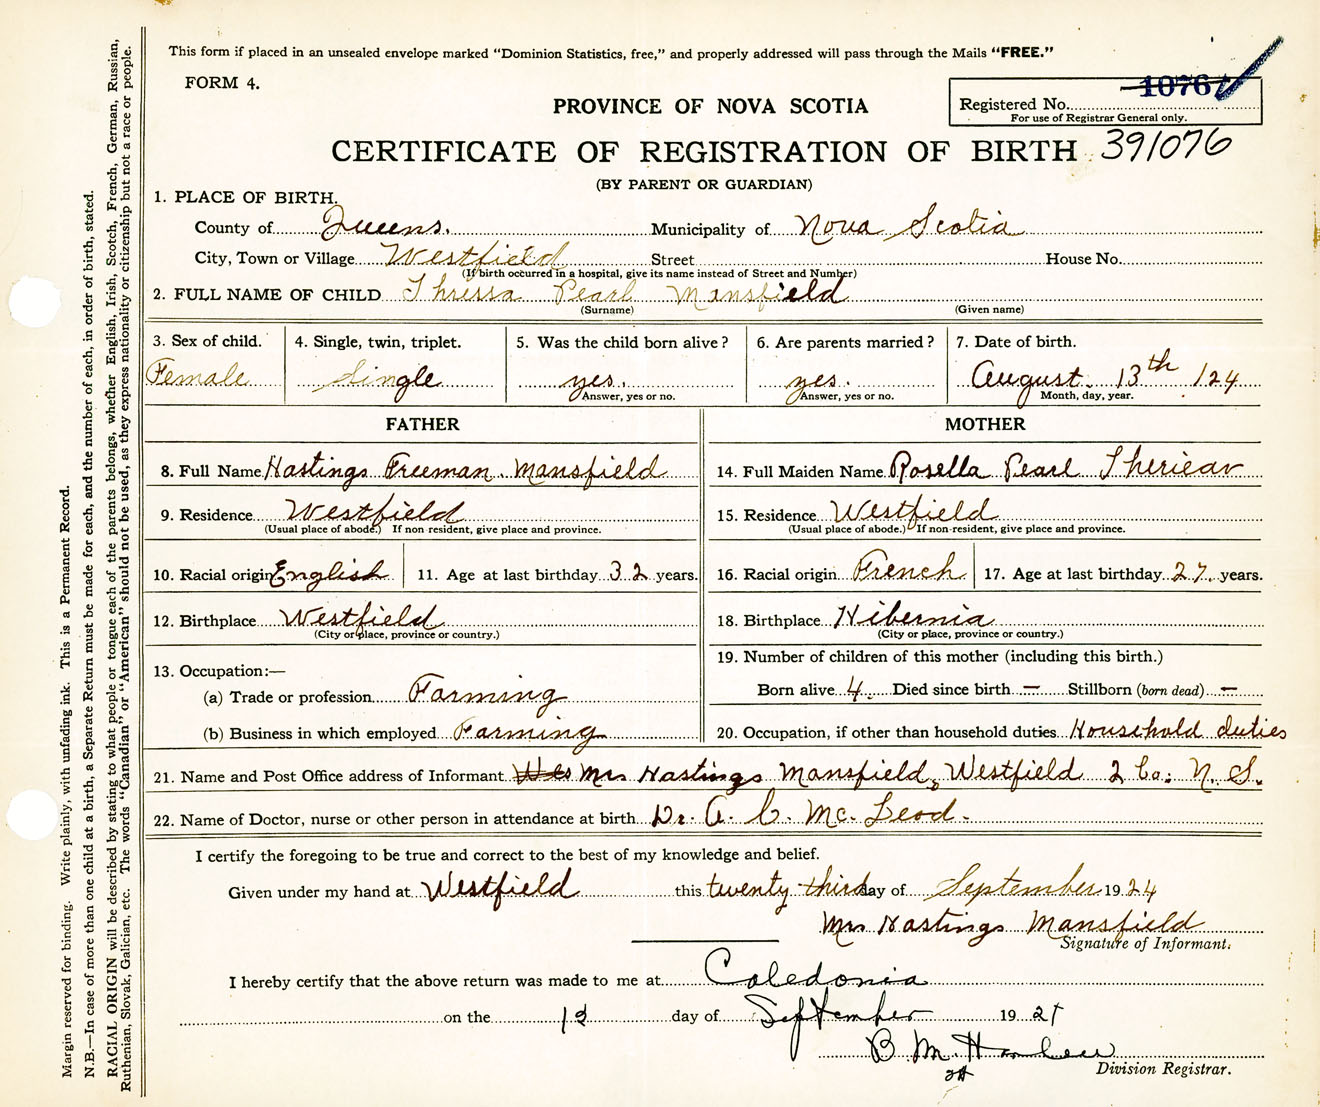 This form if placed in an unsealed envelope marked "Dominion Statistics, free," and properly addressed will pass through the Mails "FREE."
FORM 4.
1076
PROVINCE OF NOVA SCOTIA
Registered No.
For use of Registrar General only.
CERTIFICATE OF REGISTRATION OF BIRTH 391076
(BY PARENT OR GUARDIAN)
1. PLACE OF BIRTH.
County of Queens. Municipality of Nova Scotia
City, Town or Village Westfield Street House No.
(If birth occurred in a hospital, give its name instead of Street and Number)
2. FULL NAME OF CHILD Thressa Pearl Mansfield
(Surname) (Given name)
3. Sex of child. 4. Single, twin, triplet. 5. Was the child born alive? 6. Are parents married? 7. Date of birth.
Female Single yes. yes. August. 13th /24
Answer, yes or no. Answer, yes or no. Month, day, year.
FATHER MOTHER
8. Full Name Hastings Freeman. Mansfield 14. Full Maiden Name Rosella Pearl Theriear
9. Residence Westfield 15. Residence Westfield
(Usual place of abode.) If non-resident, give place and province. (Usual place of abode.) If non-resident, give place and province.
10. Racial origin English 11. Age at last birthday 32 years. 16. Racial origin French 17. Age at last birthday 27. years.
12. Birthplace Westfield 18. Birthplace Hibernia
(City or place, province or country.) (City or place, province or country.)
13. Occupation:— 19. Number of children of this mother (including this birth.)
(a) Trade or profession Farming Born alive 4. Died since birth — Stillborn (born dead) —
(b) Business in which employed Farming 20. Occupation, if other than household duties Household duties
21. Name and Post Office address of Informant Mrs Hastings Mansfield, Westfield 2 Co: N. S.
22. Name of Doctor, nurse or other person in attendance at birth Dr. A. C. McLeod.
I certify the foregoing to be true and correct to the best of my knowledge and belief.
Given under my hand at Westfield this twenty third day of September 1924
Mrs Hastings Mansfield
Signature of Informant.
I hereby certify that the above return was made to me at Caledonia
on the day of September 19 24
B M.
Division Registrar.
Margin reserved for binding. Write plainly, with unfading ink. This is a Permanent Record.
N.B.—In case of more than one child at a birth, a Separate Return must be made for each, and the number of each, in order of birth, stated.
RACIAL ORIGIN will be described by stating to what people or tongue each of the parents belongs, whether English, Irish, Scotch, French, German, Russian,
Ruthenian, Slovak, Galician, etc. The words "Canadian" or "American" should not be used, as they express nationality or citizenship but not a race or people.